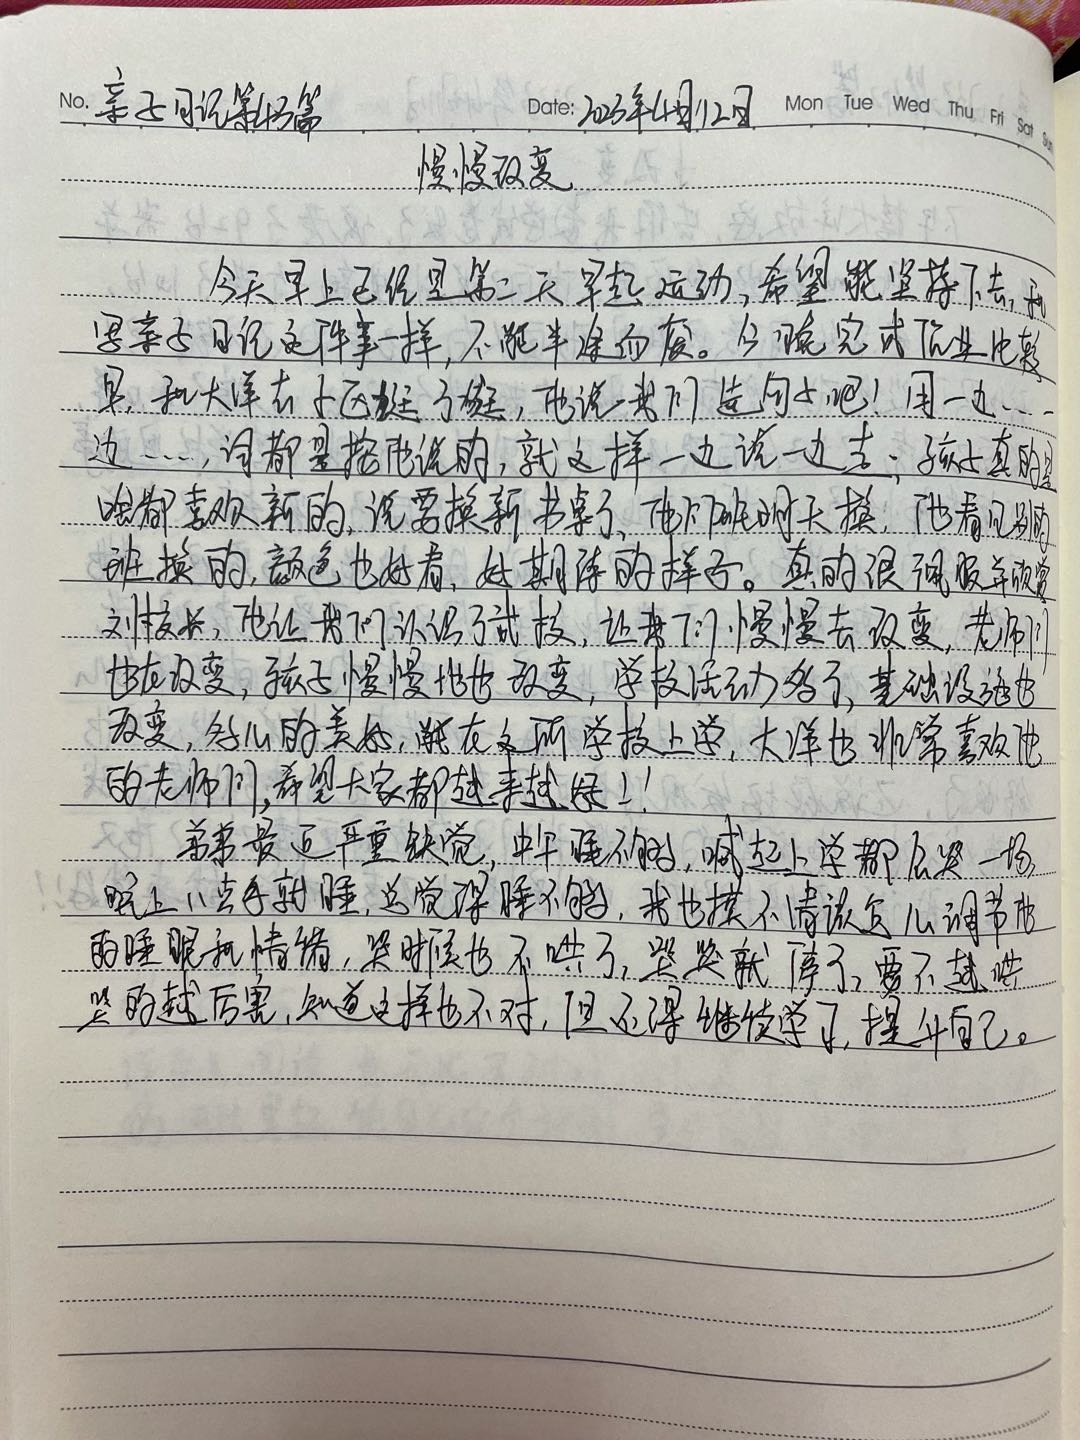 No. 亲子日记第43篇 Date: 2023年4月12日 Mon Tue Wed Thu Fri Sat Sun
慢慢改变
今天早上已经是第二天早起运动,希望能坚持下去,和
写亲子日记这件事一样,不能半途而废。今晚完成作业比较
早,和大洋去小区逛了逛,他说我们造句子吧!用一边……
边……,词都是按他说的,就这样一边说一边走,孩子真的是
啥都喜欢新的,说要换新书桌了,他们班明天换,他看见别的
班换的,颜色也好看,好期待的样子。真的很佩服并欣赏
刘校长,他让我们认识了武校,让我们慢慢去改变,老师们
也在改变,孩子慢慢地也改变,学校活动多了,基础设施也
改变,多么的美好,能在这所学校上学,大洋也非常喜欢他
的老师们,希望大家都越来越好!!
弟弟最近严重缺觉,中午睡不够,喊起上学都会哭一场,
晚上八点多就睡,总觉得睡不够,我也摸不清该怎么调节他
的睡眠和情绪,哭时候也不哄了,哭哭就停了,要不越哄
哭的越厉害,知道这样也不对,但还得继续学习,提升自己。